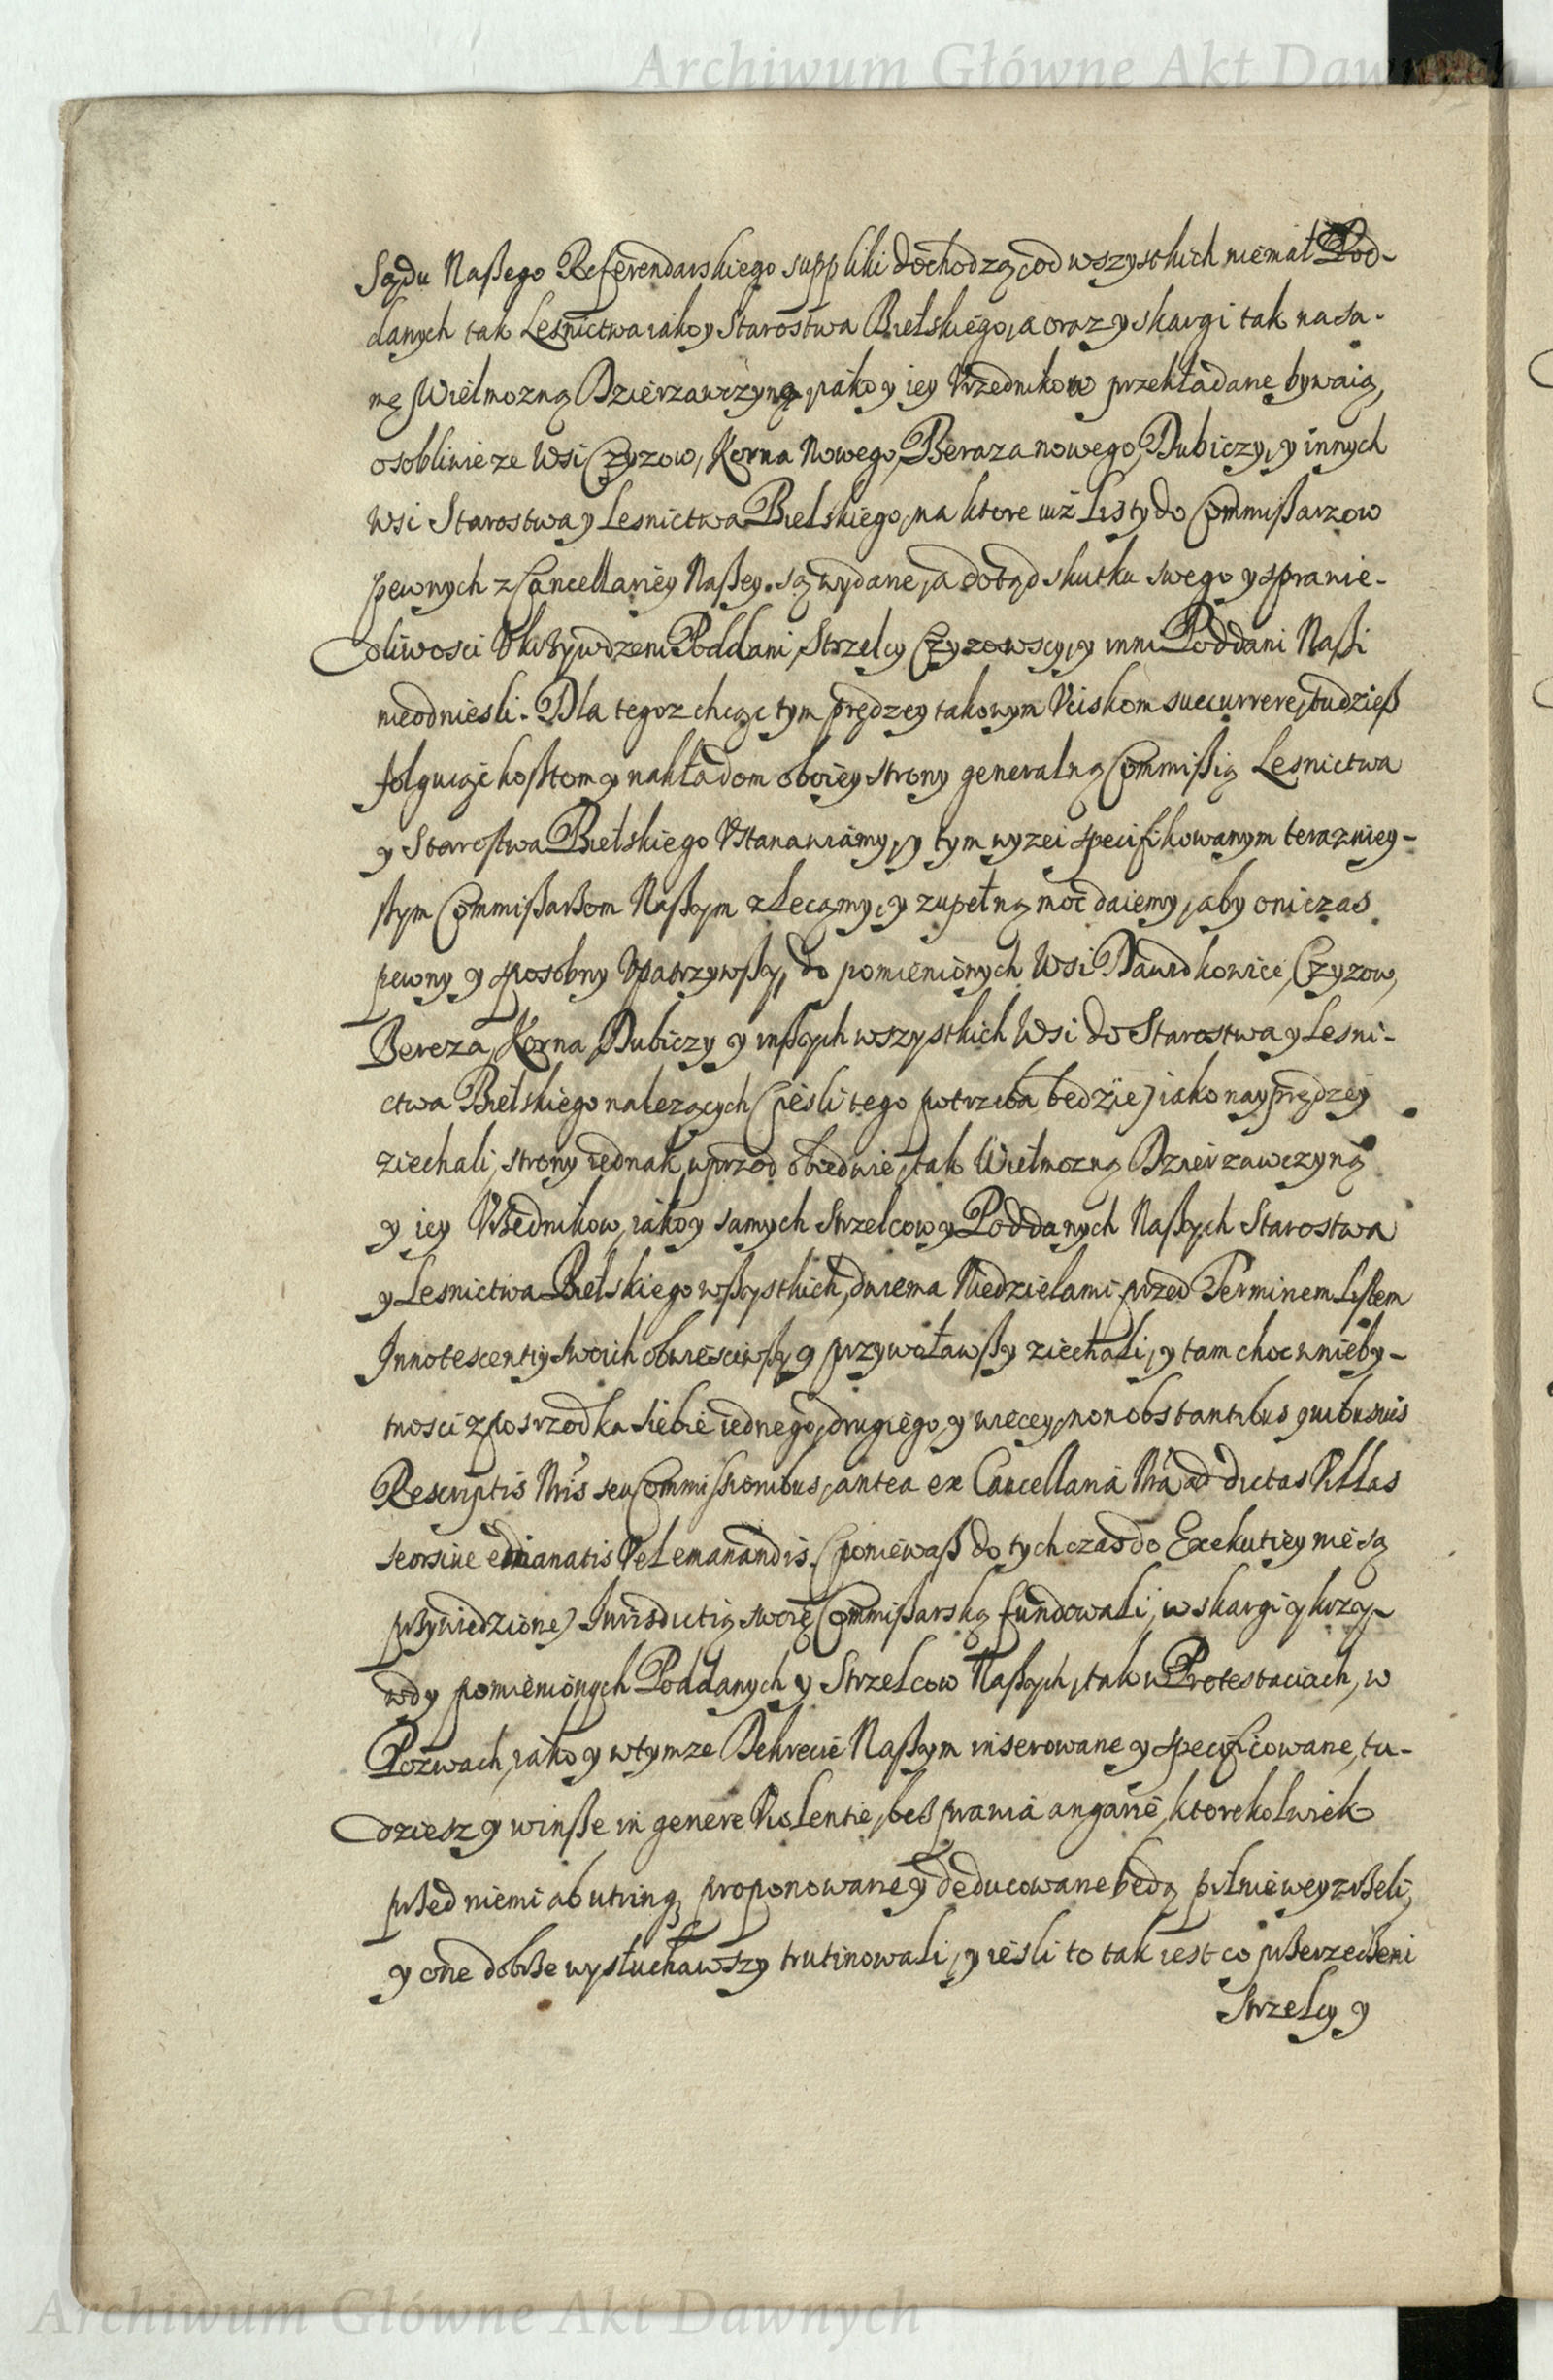 Archiwum Główne Akt Dawnych
Sądu Naßego Referendarskiego suppliki dochodzą od wszystkich niemal Pod-
danych tak Lesnictwa iako y Starostwa Bielskiego, a oraz y skargi tak na sa-
mę Wielmozną Dzierzawczynę, iako y iey Vrzednikow przekładane bywaią,
osobliwie ze Wsi Czyzow, Korna Nowego, Beraza nowego, Dubiczy, y innych
Wsi Starostwa y Lesnictwa Bielskiego, na ktore iuż Listy do Commißarzow
pewnych z Cancellariey Naßey są wydane, a dotąd skutku swego y sprawie-
dliwosci Vkrzywdzeni Poddani, Strzelcy Czyzowscy, y inni Poddani Naßi
nieodniesli. Dla tegoz chcąc tym prędzey takowym Vciskom succurrere, tudzieß
folguiąc koßtom y nakładom oboiey strony generalną Commißią Lesnictwa
y Starostwa Bielskiego Vstanawiamy, y tym wyzei specifikowanym terazniey-
ßym Commißarßom Naßym zlecamy, y zupełną moc daiemy, aby oni czas
pewny y sposobny Vpatrzywßy, do pomienionych Wsi Dawidkowice, Czyzow,
Bereza, Korna Dubiczy y inßych wszystkich Wsi do Starostwa y Lesni-
ctwa Bielskiego nalezących (iesli tego potrzeba bedzie) iako nayprędzey
ziechali, strony iednak wprzod obiedwie, tak Wielmozną Dzierzawczynę
y iey Vrzednikow, iako y samych Strzelcow y Poddanych Naßych Starostwa
y Lesnictwa Bielskiego wßystkich, dwiema Niedzielami przed Terminem Listem
Innotescentiy swoich obwiesciwßy y przywoławßy ziechali, y tam choc w nieby-
tnosci z posrzodka siebie iednego, drugiego y wiecey, non obstantibus quibusuis
Rescriptis Nris seu Commissionibus, antea ex Cancellaria Nra ad dictas Villas
seorsiue emanatis Vel emanandis (poniewaß do tych czas do Exekutiey nie są
przywiedzione) Iurisdictią swoię Commißarską fundowali, w skargi y krzy-
wdy pomienionych Poddanych y Strzelcow Naßych, tak w Protestaciach, w
Pozwach, iako y w tymze Dekrecie Naßym inserowane y specificowane, tu-
dziesz y w inße in genere Violentie, bes prawia angarie, ktorekolwiek
przed niemi ab utrinq proponowane y deducowane będą pilnie weyzrßeli,
y one dobrße wysłuchawszy trutinowali, y iesli to tak iest co przerzeczeni
Strzelcy y
Archiwum Główne Akt Dawnych